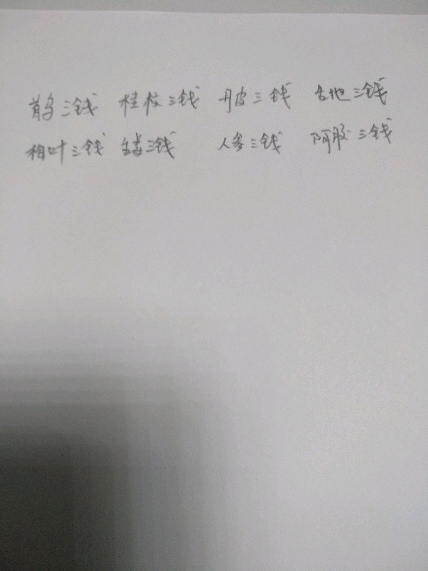 首乌三钱 桂枝三钱 丹皮三钱 生地三钱
柏叶三钱 三钱 人参三钱 阿胶三钱